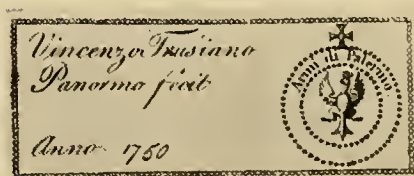 Vincenzo Trusiano
Panormo fecit
Anno 1750
Armi di Palermo.